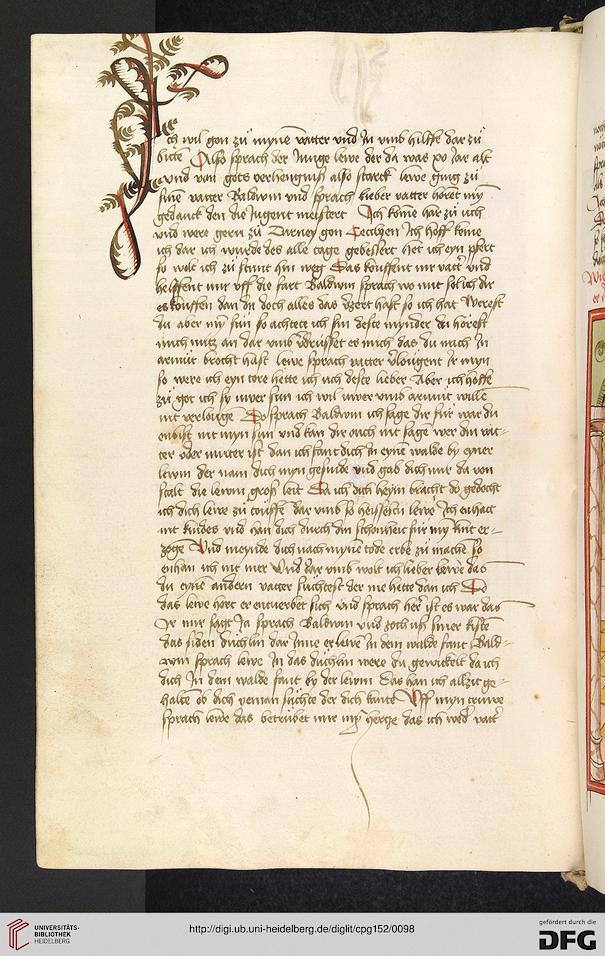 Ich wil gon zü mynē vatter vnd Jn vmb hilffe dar zü
bitte Also sprach der Junge lewe der da was xv Jar alt
vnd von gots verhengniß also starck lewe ging zü
sine vatter Baldwin vnd sprach lieber vatter hörēt mȳ
gedanck den die Jugent meistert Ich köme har zü uch
vnd were gern zü gon stechen Jch hoff köme
ich dar ich würde des alle tage gebessert Het ich eyn pfert
so wolt ich zü stunt hin weg Das kouffent mir vatter vnd
helffent mir vff die fart Baldwin sprach wo mit sol ich dir
es kouffen dan du doch alles das verzert hast so ich hat Werest
du aber myn sün so achtete ich sin deste mynder du hörest
mich nutz an dar vmb verdrüsset es mich das du mich Jn
armüt brocht hast lewe sprach vatter verlougent Jr myn
so were ich eyn tore hette ich uch deste lieber Aber ich hoffe
zü got ich sy uwer sün ich wil uwer vmb armüt wille
nit verlouge Do sprach Baldwin ich sage dir für war du
enbist nit myn sün vnd kan dir ouch nit sagē wer din vat-
ter oder mütter ist dan ich fant dich in eynē walde by eyner
lewin der nam dich myn gesinde vnd gab dich mir da von
stalt die lewin groß leit Da ich dich heym bracht do gedocht
ich dich lewe zü touffe dar vmb so heissestu lewe Ich enhatt
nit kindes vnd han dich durch din schonheit für myn kint er-
zoge Vnd meynde dich nach mynē tode erbe zü machē so
enhan ich nit mer Vnd dar vmb wolt ich lieber lewe das
du eynē andern vatter süchtest der me hette dan ich Do
das lewe hört er entuerbet sich vnd sprach her ist es war das
Jr mir sagt Ja sprach Baldwin vnd zoch vß siner kiste
das siden düchlin dar Jnne er lewe Jn dem walde fant Bald-
win sprach lewe Jn das düchlin were du gewickelt da ich
dich Jn dem walde fant by der lewin Das han ich allzit ge-
halte ob dich yeman süchte der dich kante Vff myn truwe
sprach lewe das betrübet mir mȳ hertze das ich wed' vatt'
UNIVERSITÄTS-
BIBLIOTHEK
HEIDELBERG
http://digi.ub.uni-heidelberg.de/diglit/cpg152/0098
gefördert durch die
DFG